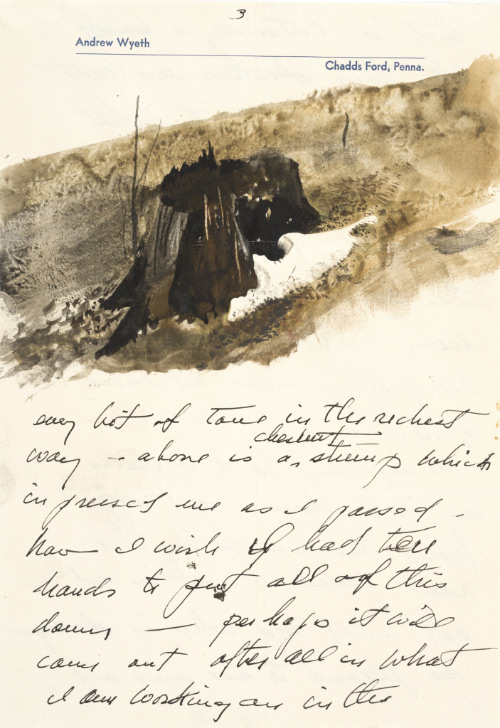 3
Andrew Wyeth
Chadds Ford, Penna.
evey bit of tone in the richest
chesnut
way - above is a stump which
impresed me as I passed -
how I wish I had ten
hands to put all of this
down — perhaps it will
come out after all in what
I am working on in the